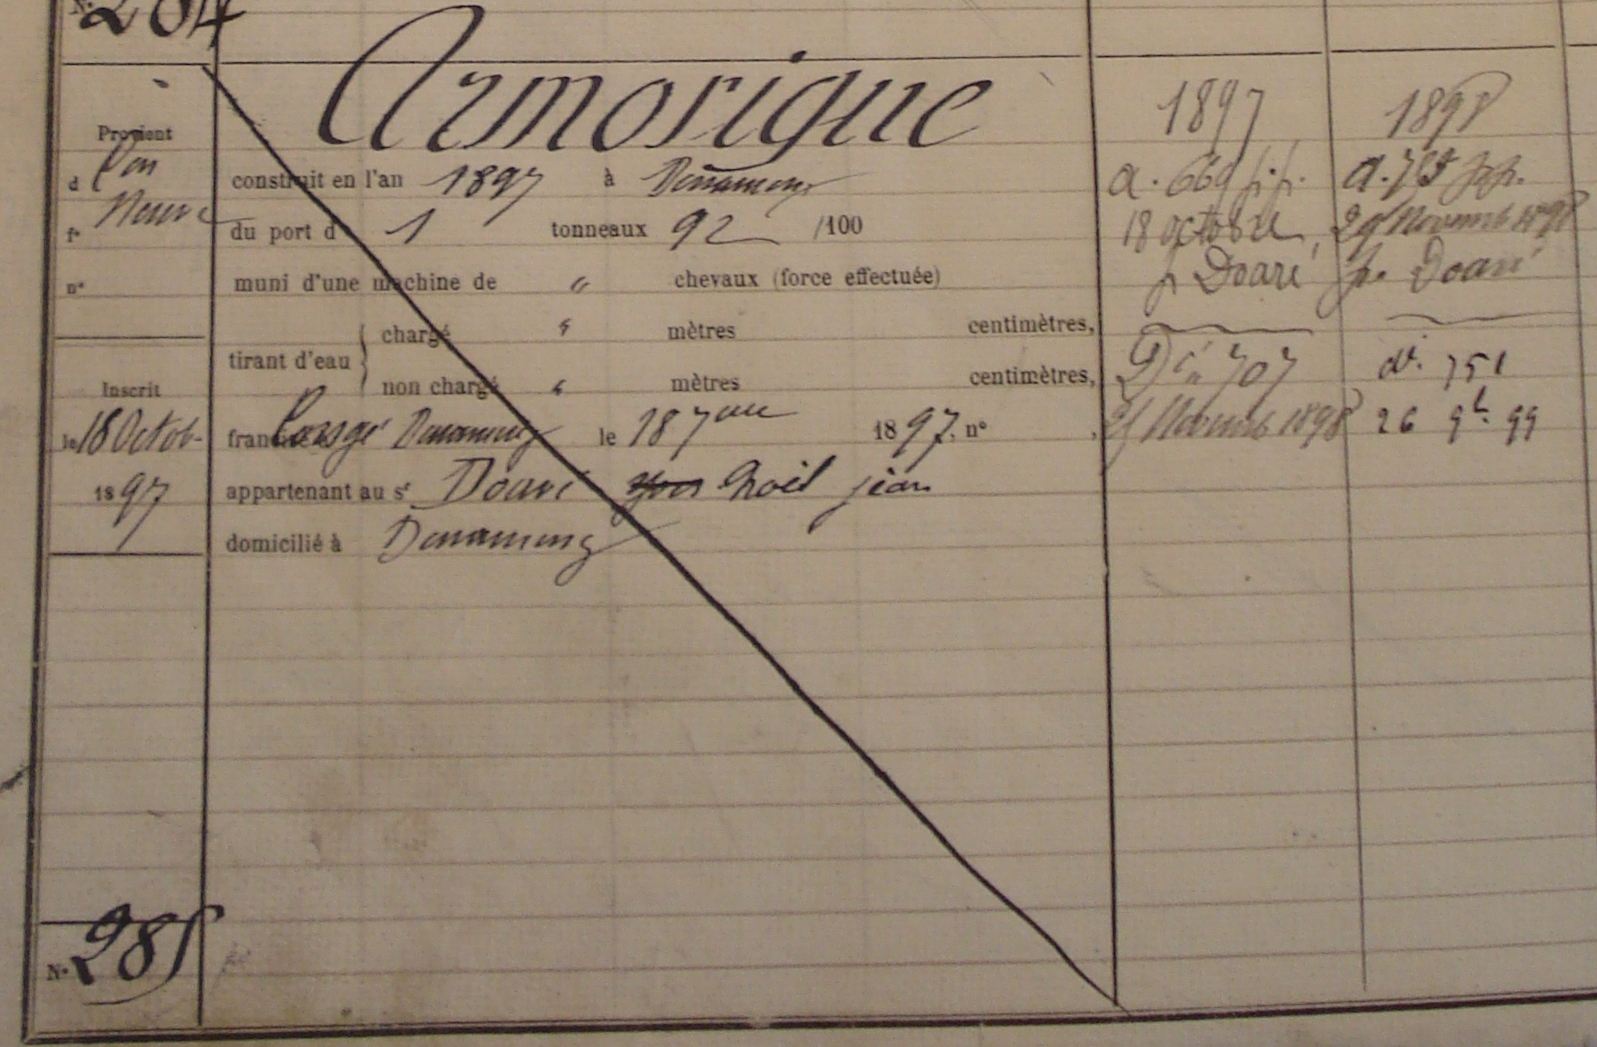 N° 284
Armorique
Provient
d Con
f° Neuve
n°
construit en l'an 1897 à Douarnenez
du port d 1 tonneaux 92 /100
muni d'une machine de " chevaux (force effectuée)
tirant d'eau
chargé " mètres centimètres,
non chargé " mètres centimètres,
Inscrit
le 18 Octob-
1897
Douarnenez le 18 7bre 1897, n° ,
appartenant au st Doaré Yves Noël jean
domicilié à Douarnenez
1897
a. 669 p.p.
18 octobre
p Doaré
Dé 707
Novemb 1898
1898
29 Novemb 1898
p. Doaré
d. 751
26 9b. 99
N° 285